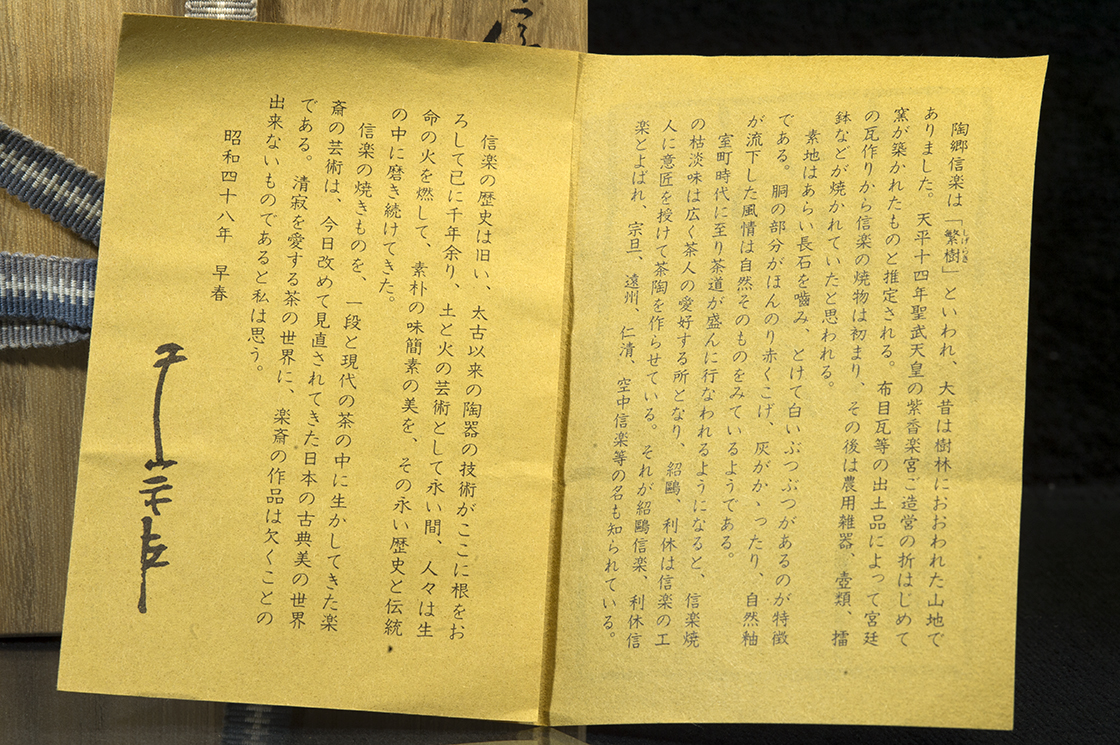 陶郷信楽は「繁樹」といわれ、大昔は樹林におおわれた山地で
しげき
ありました。天平十四年聖武天皇の紫香楽宮ご造営の折はじめて
窯が築かれたものと推定される。布目瓦等の出土品によって宮廷
の瓦作りから信楽の焼物は初まり、その後は農用雑器、壺類、擂
鉢などが焼かれていたと思われる。
素地はあらい長石を嚙み、とけて白いぶつぶつがあるのが特徴
である。胴の部分がほんのり赤くこげ、灰がかゝったり、自然釉
が流下した風情は自然そのものをみているようである。
室町時代に至り茶道が盛んに行なわれるようになると、信楽焼
の枯淡味は広く茶人の愛好する所となり、紹鷗、利休は信楽の工
人に意匠を授けて茶陶を作らせている。それが紹鷗信楽、利休信
楽とよばれ、宗旦、遠州、仁清、空中信楽等の名も知られている。
信楽の歴史は旧い、太古以来の陶器の技術がここに根をお
ろして已に千年余り、土と火の芸術として永い間、人々は生
命の火を燃して、素朴の味簡素の美を、その永い歴史と伝統
の中に磨き続けてきた。
信楽の焼きものを、一段と現代の茶の中に生かしてきた楽
斎の芸術は、今日改めて見直されてきた日本の古典美の世界
である。清寂を愛する茶の世界に、楽斎の作品は欠くことの
出来ないものであると私は思う。
昭和四十八年　早春
信